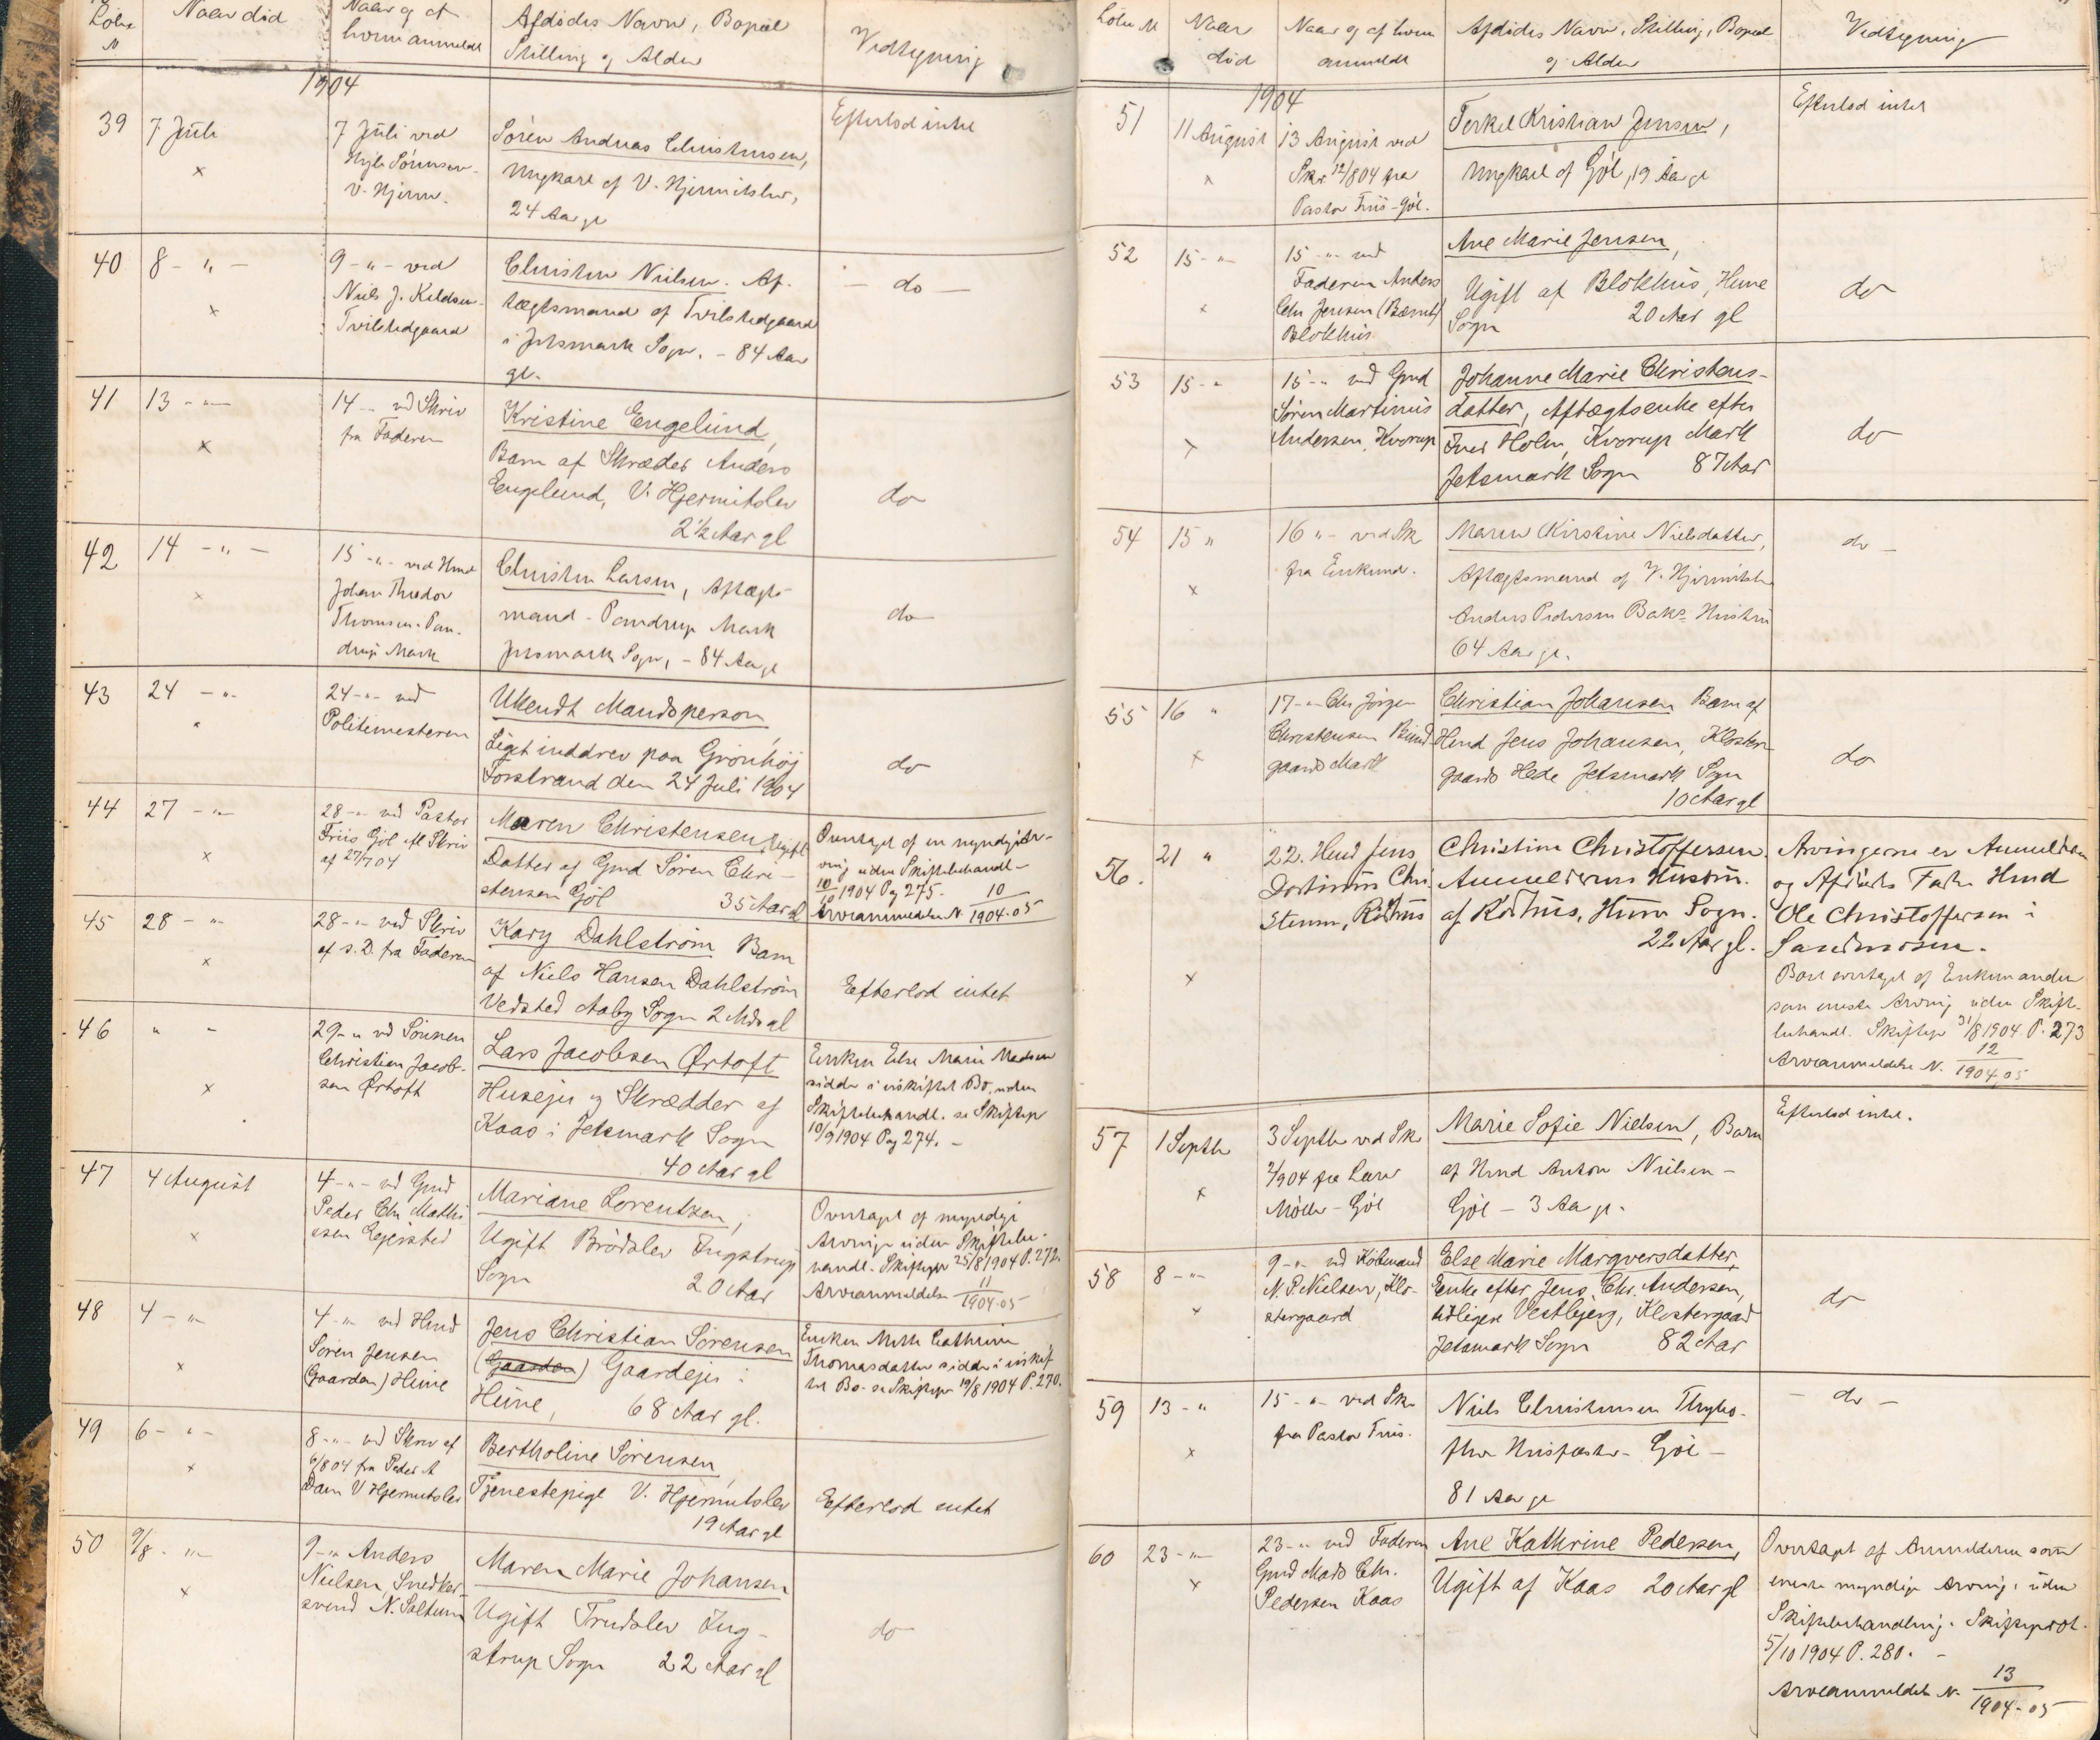 Løbe
N
Naar død
Naar og af
hvem anmeldt
Afdødes Navn, Bopæl
Stilling og Alder
Vedtegning
1904
39
7 Juli
x
7 Juli ved
Sörensen
V. Hjerm.
Sören Andreas Christensen,
Ungkarl af V. Hjermitslev,
24 Aar gl
Efterlod intet
40
8 - " -
x
9 - " - ved
Niels J. Keldsen
Tvilstedgaard
Christen Nielsen. Af-
tægtsmand af Tvilstedgaard
i Jetsmark Sogn. - 84 Aar
gl.
- do -
41
13 - " -
x
14 - " ved Skriv
fra Faderen
Kristine Engelund,
Barn af Skræder Anders
Engelund, V. Hjermitslev
2 1/2 Aar gl
do
42
14 - " -
x
15 - " - ved Hmd
Johan Theodor
Thomsen - Pan-
drup Mark
Christen Larsen, Aftægts-
mand - Pandrup Mark
Jetsmark Sogn, - 84 Aar gl
do
43
24 - " -
24 - " - ved
Politimesteren
Ukendt Mandsperson,
Liget inddrev paa Grönhöj
Forstrand den 24 Juli 1904
do
44
27 - " -
x
28 - " - ved Pastor
Friis Gjöl efl Skriv
af 27/7 04
Maren Christensen, Ugift
Datter af Gmd Sören Chri-
stensen Gjöl
35 Aar gl
Overtaget af en myndig Ar-
ving uden Skiftebehandl-
10/10 1904 Pag 275.
Arveanmeldelse N. 10/1904-05
45
28 - " -
x
28 - " - ved Skriv
af s. D. fra Faderen
Kary Dahlström Barn
af Niels Hansen Dahlström
Vedsted Aaby Sogn 2 Mdr gl
Efterlod intet
46
" -
x
29 - " ved Sönnen
Christian Jacob-
sen Ørtoft
Lars Jacobsen Ørtoft
Husejer og Skrædder af
Kaas i Jetsmark Sogn
40 Aar gl
Enken Else Marie Madsen
sidder i uskiftet Bo. uden
Skiftebehandl. se Skiftepr
10/9 1904 Pag 274. -
47
4 August
x
4 - " - ved Gmd
Peder Chr Mathi
esen Gjersted
Mariane Lorentzen,
Ugift Brödslev Ingstrup
Sogn 20 Aar
Overtaget af myndige
Arvinger uden Skiftebe-
handl. Skiftepr 25/8 1904 P. 272.
Arveanmeldelse 11/1904-05
48
4 - " -
x
4 - " ved Hmd
Sören Jensen
(Gaarden) Hune
Jens Christian Sörensen
(Gaarden) Gaardejer i
Hune, 68 Aar gl.
Enken Mette Cathrine
Thomasdatter sidder i uskif
tet Bo - se Skiftepr 19/8 1904 P. 270.
49
6 - " -
x
8 - " - ved Skriv af
6/8 04 fra Peder A
Dam V Hjermitslev
Bertholine Sörensen,
Tjenestepige V. Hjermitslev
19 Aar gl
Efterlod intet
50
9/8 - " -
x
9 - " Anders
Nielsen, Snedker-
svend N. Saltum
Maren Marie Johansen
Ugift Trudslev Ing-
strup Sogn 22 Aar gl
do
Löbe N
Naar
död
Naar og af hvem
anmeldt
Afdödes Navn, Stilling, Bopæl
og Alder
Vedtegning
1904
51
11 August
x
13 August ved
Skr. 12/8 04 fra
Pastor Friis - Gjöl.
Terkel Kristian Jensen,
Ungkarl af Gjöl, 19 Aar gl
Efterlod intet
52
15 - " -
x
15 - " - ved
Faderen Anders
Chr Jensen (Bærent)
Blokhus
Ane Marie Jensen,
Ugift af Blokhus, Hune
Sogn 20 Aar gl
do
53
15 - "
x
15 - " ved Gmd
Sören Martinus
Andersen, Kvorup
Johanne Marie Christens-
datter, Aftægtsenke efter
Iver Holm, Kvorup Mark
Jetsmark Sogn 87 Aar
do
54
15 "
x
16 " - ved Sk
fra Enkemd.
Maren Kirstine Nielsdatter,
Aftægtsmand af V. Hjermitslev
Anders Pedersen Baks Hustru
64 Aar gl.
do -
55
16 "
x
17 - " Chr Jörgen
Christensen Rind-
gaards Mark
Christian Johansen Barn af
Hmd Jens Johansen, Kloster-
gaards Hede Jetsmark Sogn
10 Aar gl
do
56.
21 "
x
22. Hmd Jens
Dortinus Chri
stensen, Rödhus
Christine Christoffersen.
Anmelderens Hustru.
af Rödhus, Hune Sogn.
22 Aar gl.
Arvingerne er Anmelderen
og Afdödes Fader Hmd
Ole Christoffersen i
Sandmosen.
Boet overtaget af Enkemanden
som eneste Arving uden Skifte-
behandl. Skiftepr 31/8 1904 P. 273
Arveanmeldelse N. 12/1904-05
57
1 Septbr
x
3 Septbr ved Skr
2/9 04 fra Lærer
Möller - Gjöl
Marie Sofie Nielsen, Barn
af Hmd Anton Nielsen -
Gjöl - 3 Aar gl.
Efterlod intet.
58
8 - " -
x
9 - " - ved Købmand
N. P. Nielsen, Klo-
stergaard
Else Marie Margversdatter,
Enke efter Jens Chr. Andersen,
tidligere Vestbjerg, Klostergaard
Jetsmark Sogn 82 Aar
do
59
13 - "
x
15 - " - ved Skr
fra Pastor Friis.
Niels Christensen Thybo.
fhv Husfæster - Gjöl -
81 Aar gl
- do -
60
23 - " -
x
23 - " ved Faderen
Gmd Mads Chr.
Pedersen Kaas
Ane Kathrine Pedersen,
Ugift af Kaas 20 Aar gl
Overtaget af Anmelderen som
eneste myndige Arving, uden
Skiftebehandling. Skifteprot.
5/10 1904 P. 280. -
Arveanmeldelse N. 13/1904-05